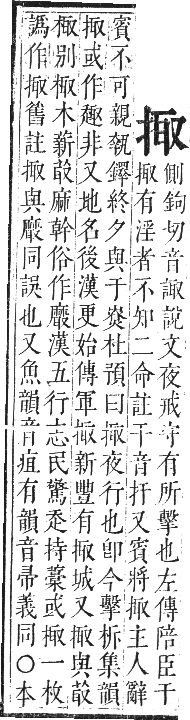 掫
側鉤切音諏說文夜戒守有所擊也左傳陪臣干
掫有淫者不知二命註干音扞又賓將掫主人辭
賓不可親執鐸終夕與于燎杜預曰掫夜行也卽今擊柝集韻
掫或作趣非又地名後漢更始傳軍掫新豐有掫城又掫與菆
棷別棷木薪菆麻幹俗作黀漢五行志民驚走持藁或掫一枚
譌作掫舊註掫與黀同誤也又魚韻音疽有韻音帚義同○本